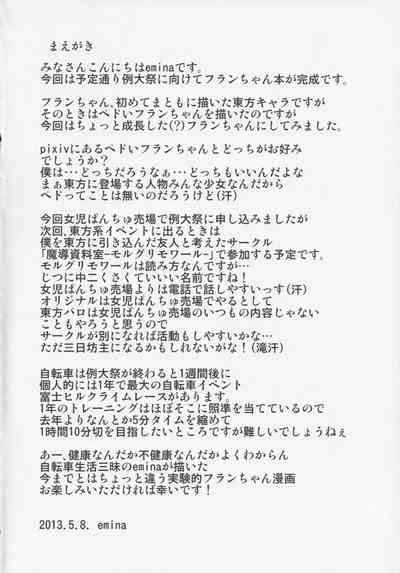 まえがき
みなさんこんにちはeminaです。
今回は予定通り例大祭に向けてフランちゃん本が完成です。
フランちゃん、初めてまともに描いた東方キャラですが
そのときはペドいフランちゃんを描いたのですが
今回はちょっと成長した(?)フランちゃんにしてみました。
pixivにあるペドいフランちゃんとどっちがお好み
でしょうか?
僕は…どっちだろうなぁ…どっちもいいんだよな
まぁ東方に登場する人物みんな少女なんだから
ペドってことは無いのだろうけど(汗)
今回女児ぱんちゅ売場で例大祭に申し込みましたが
次回、東方系イベントに出るときは
僕を東方に引き込んだ友人と考えたサークル
「魔導資料室-モルグリモワール-」で参加する予定です。
モルグリモワールは読み方なんですが…
じつに中二くさくていい名前ですね!
女児ぱんちゅ売場よりは電話で話しやすいっす(汗)
オリジナルは女児ぱんちゅ売場でやるとして
東方パロは女児ぱんちゅ売場のいつもの内容じゃない
こともやろうと思うので
サークルが別になれば活動もしやすいかな…
ただ三日坊主になるかもしれないがな!(滝汗)
自転車は例大祭が終わると1週間後に
個人的には1年で最大の自転車イベント
富士ヒルクライムレースがあります。
1年のトレーニングはほぼそこに照準を当てているので
去年よりなんとか5分タイムを縮めて
1時間10分切を目指したいところですが難しいでしょうねぇ
あー、健康なんだか不健康なんだかよくわからん
自転車生活三昧のeminaが描いた
今までとはちょっと違う実験的フランちゃん漫画
お楽しみいただければ幸いです!
2013.5.8. emina